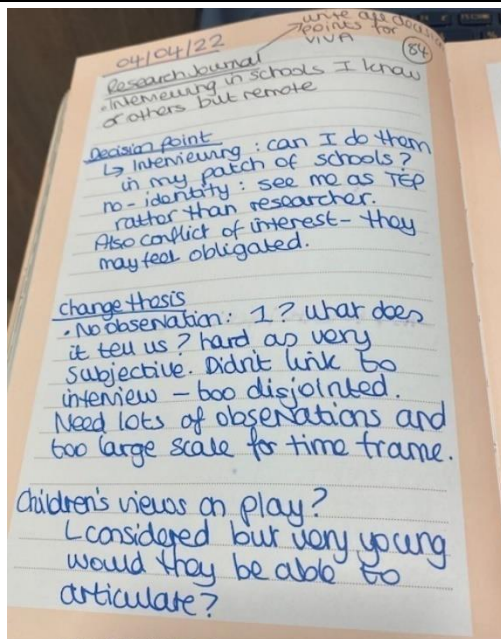 04/04/22
write all decision
points for
VIVA
84
Research Journal
- Interviewing in schools I know
or others but remote
Decision Point
↳ Interviewing : can I do them
in my patch of schools?
no - identity : see me as TEP
rather than researcher.
Also conflict of interest - they
may feel obligated.
Change thesis
• No observation : 1? what does
it tell us? hard as very
subjective. Didn't link to
interview - too disjointed.
Need lots of observations and
too large scale for time frame.
Children's views on play?
↳ considered but very young
would they be able to
articulate?